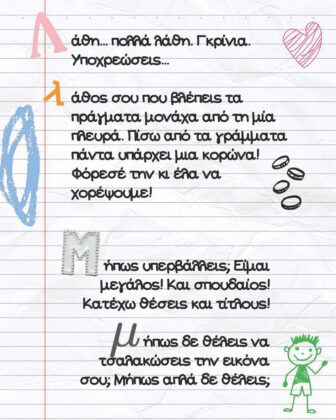 Λάθη... πολλά λάθη. Γκρίνια.
Υποχρεώσεις...
λάθος σου που βλέπεις τα
πράγματα μονάχα από τη μία
πλευρά. Πίσω από τα γράμματα
πάντα υπάρχει μια κορώνα!
Φόρεσέ την κι έλα να
χορέψουμε!
Μήπως υπερβάλλεις; Είμαι
μεγάλος! Και σπουδαίος!
Κατέχω θέσεις και τίτλους!
μήπως δε θέλεις να
τσαλακώσεις την εικόνα
σου; Μήπως απλά δε θέλεις;